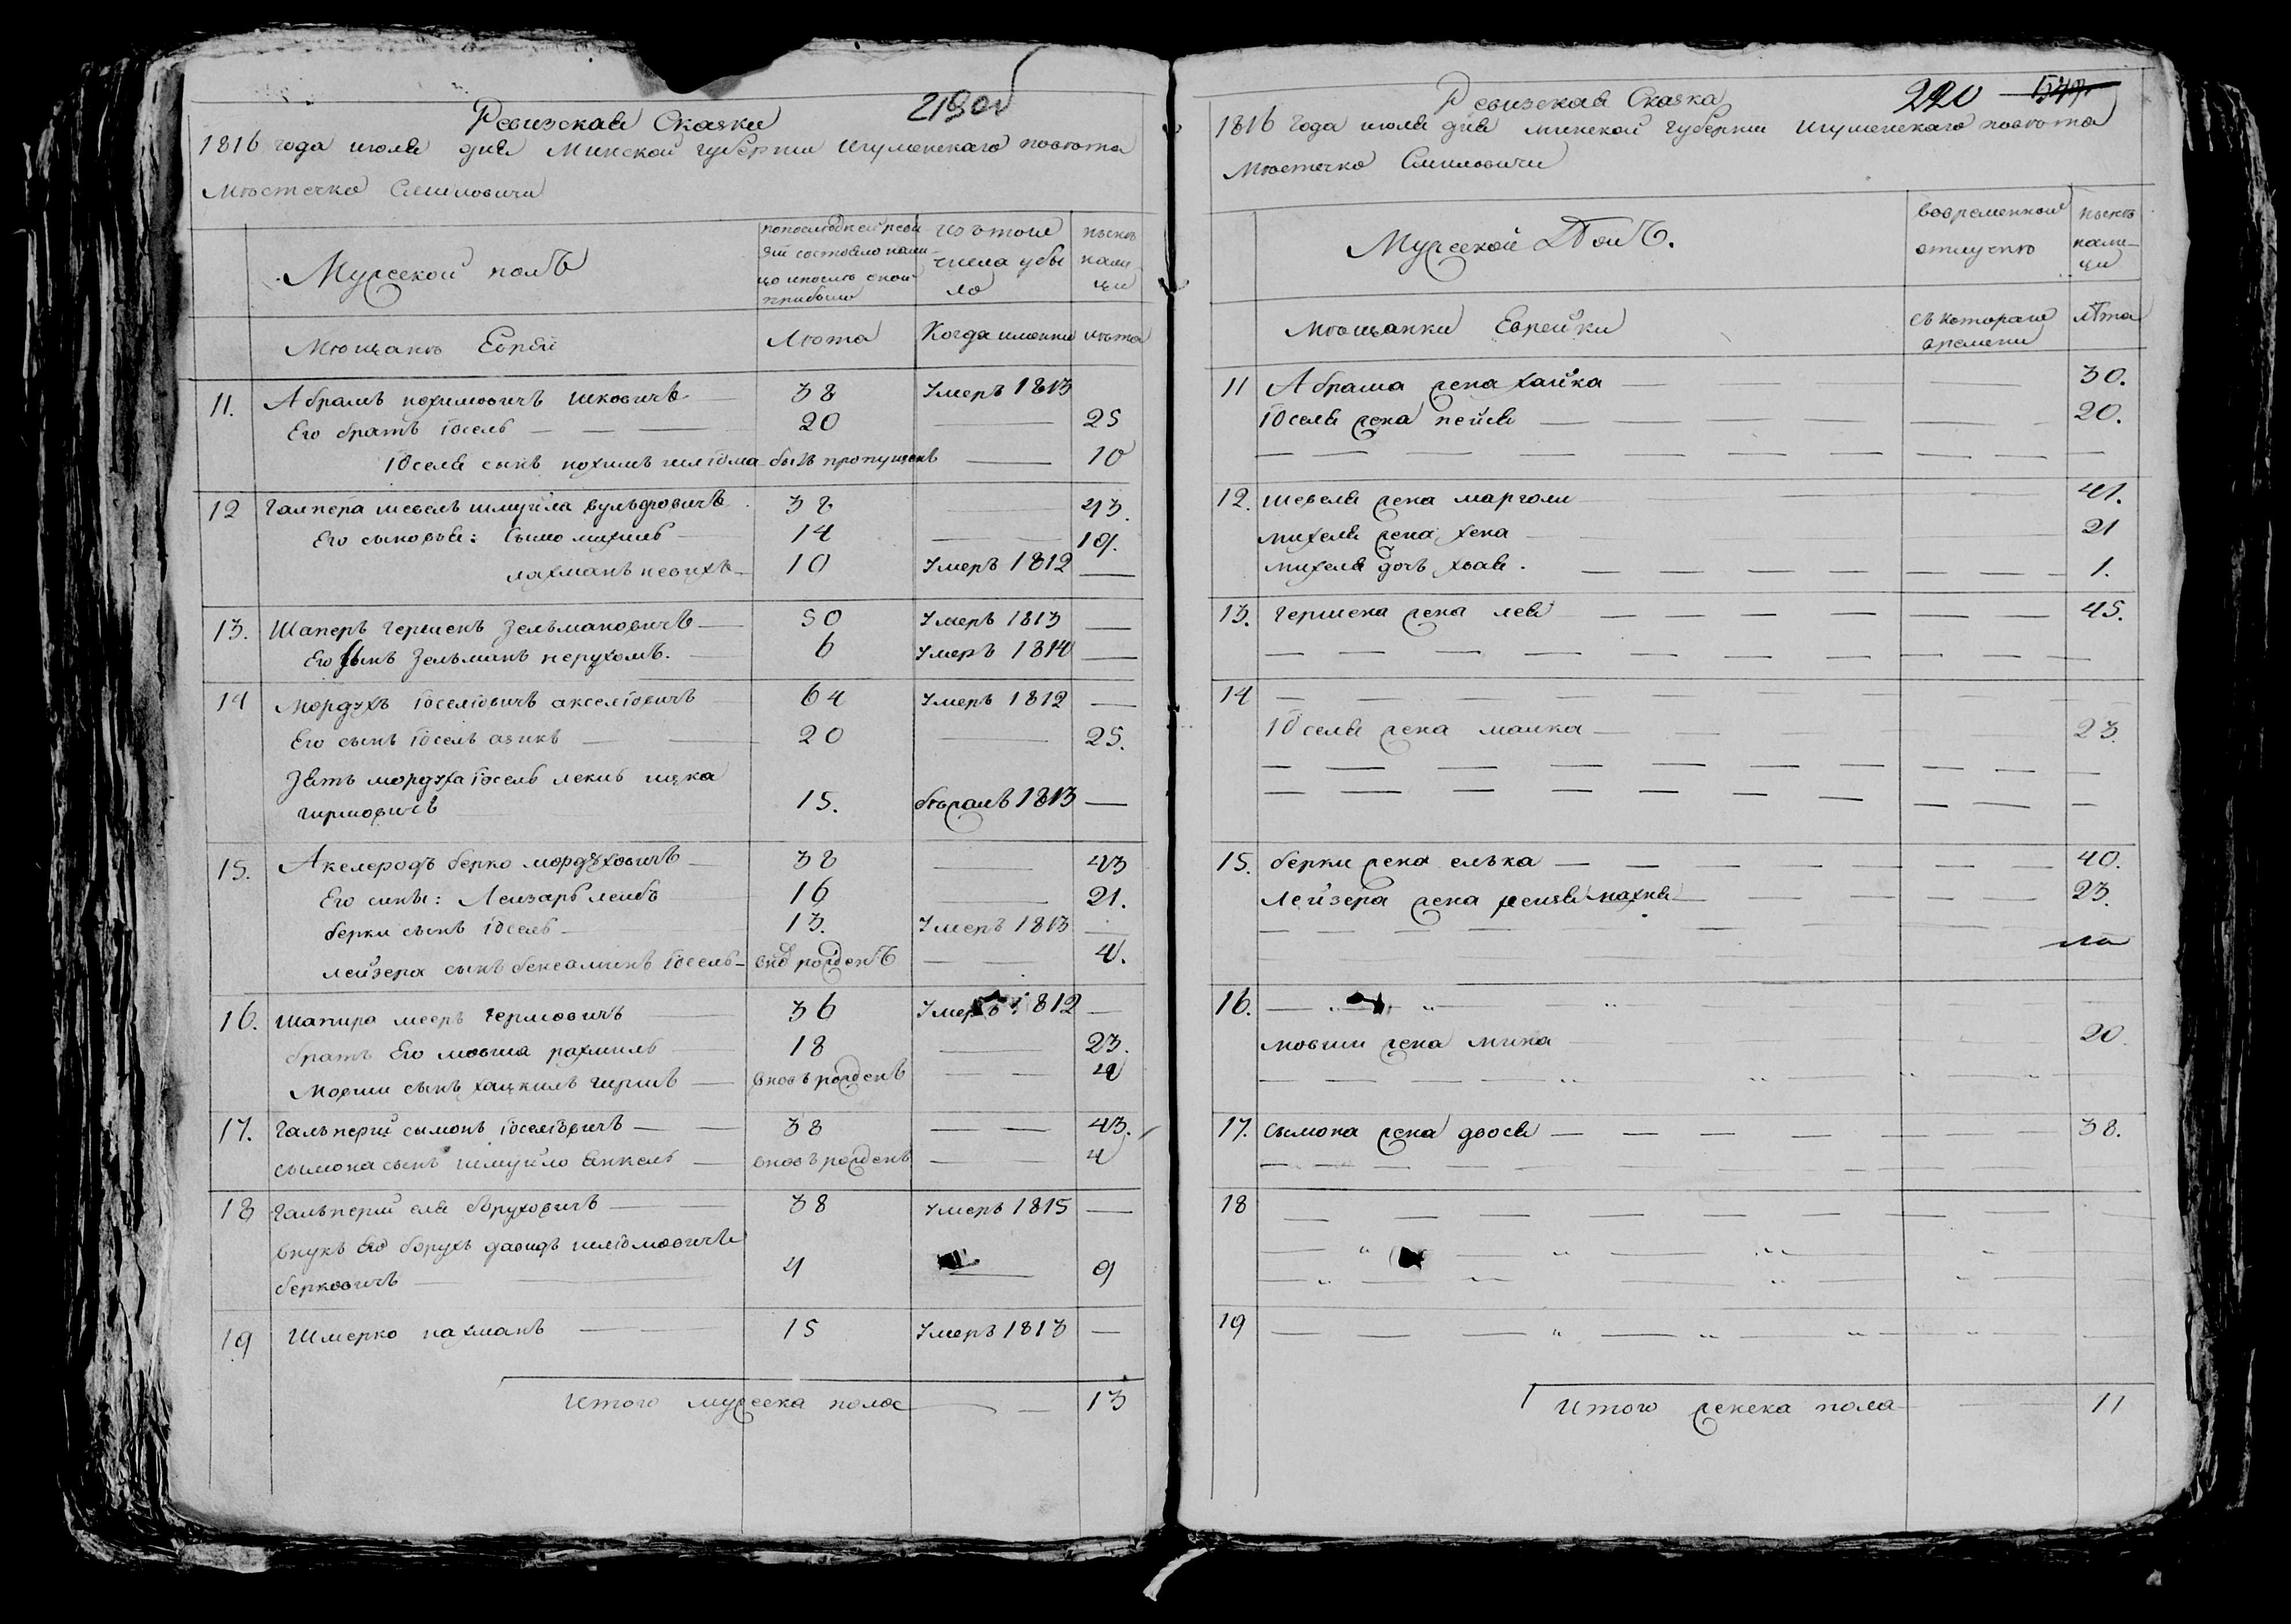 Ревизская Сказка 219 об
1816 года июля дня Минской губернии Игуменскаго повѣта
Мѣстечка Смиловичи
Мужской полъ
по последней реви
зіи состояло нали
цо и после оной
прибыло
изъ того
числа убы
ло
нынѣ
нали
цы
Мѣщанъ Еврей
Лѣта
Когда именно
лѣта
11. Абрамъ нохимовичъ ицковичъ 38 Умеръ 1813
Его братъ Іосель 20 25
Іоселя сынъ нохимъ шліома былъ пропущенъ 10
12 Галпера шевель шмуйла вульфовичъ 38 43
Его сыновья: сымо михиль 14 19.
лахманъ 10 Умеръ 1812
13. Шаперъ гершенъ зельмановичъ 50 Умеръ 1813
Его сынъ зельманъ нерухомъ. 6 Умеръ 1814
14 Мордухъ Іоселіовичъ акселіовичъ 64 Умеръ 1812
Его сынъ Іосель азикъ 20 25.
Зять мордуха Іосель лекиъ ицка
гиршовичъ 15. бѣжалъ 1813
15. Акелеродъ берко мордуховичъ 38 43
Его сины: Леизаръ леибъ 16 21.
берки сынъ Іосель 13. Умеръ 1813
лейзера сынъ бенсаминъ Іосель вно рожденъ 4.
16. Шапира мееръ гершовичъ 36 Умеръ 1812
братъ Его мовша рахмиль 18 23.
Мовши сынъ хацкиль гиршъ вновъ рожденъ 4
17. Гальперинъ сымонъ Іоселіовичъ 38 43.
сымона сынъ шмуйло янкель вновъ рожденъ 4
18 Гальперин еля боруховичъ 38 умеръ 1815
внукъ Его борухъ давидъ шліомовичъ
берковичъ 4 9
19 Шмерко нахманъ 15 Умеръ 1813
Итого мужеска пола 13
Ревизская Сказка 220 549
1816 года июля дня минской губернии Игуменскаго повѣта
Мѣстечка Смиловичи
Мужской Полъ.
вовременной
отлучкѣ
нынѣ
нали-
цы
мѣщанки Еврейки
съ котораго
времени
лѣта
11 Абрама жена хайка 30.
Іоселя жена пейся 20.
12. шевеля жена марголи 41.
михеля жена хена 21
михеля дочь хвая. 1.
13. гершена жена лея 45.
14
Іоселя жена малка 23.
15. берки жена елька 40.
Лейзера жена махля 23.
16.
мовши жена мина 20
17. сымона жена двося 38.
18
19
Итого женска пола 11